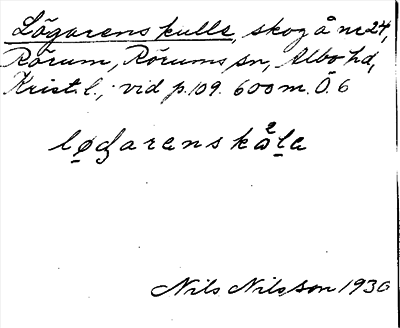 Lögarens kulle, skog å nr 24,
Rörum, Rörums sn, Albo hd,
Krist. l., vid p. 109. 600 m. Ö. 6
Nils Nilsson 1930